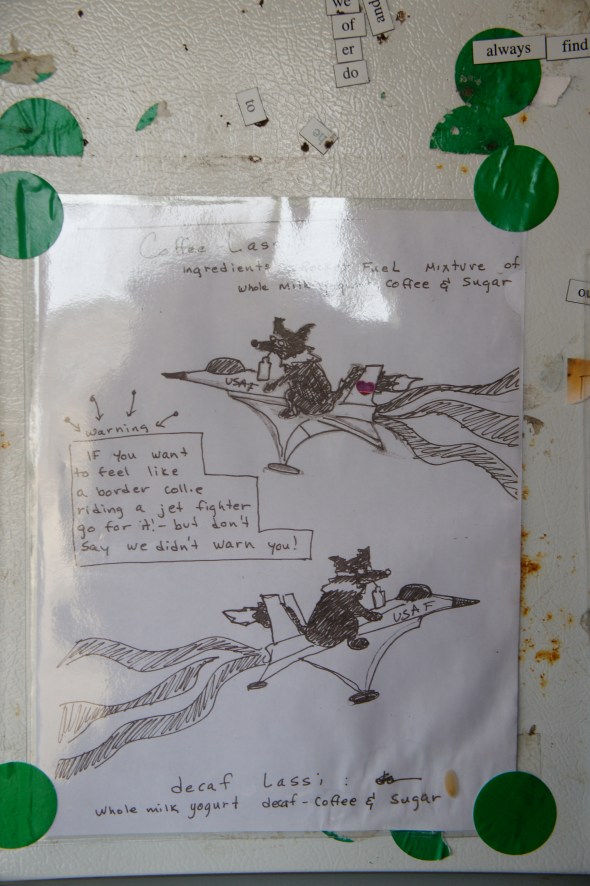 we
of
er
do
and
to
always find
Coffee Las
ingredients Fuel Mixture of
whole milk Coffee & Sugar
USAF
warning
IF you want
to feel like
a border collie
riding a jet fighter
go for it! - but don't
Say we didn't warn you!
USAF
decaf Lassi :
whole milk yogurt deaf-Coffee & Sugar